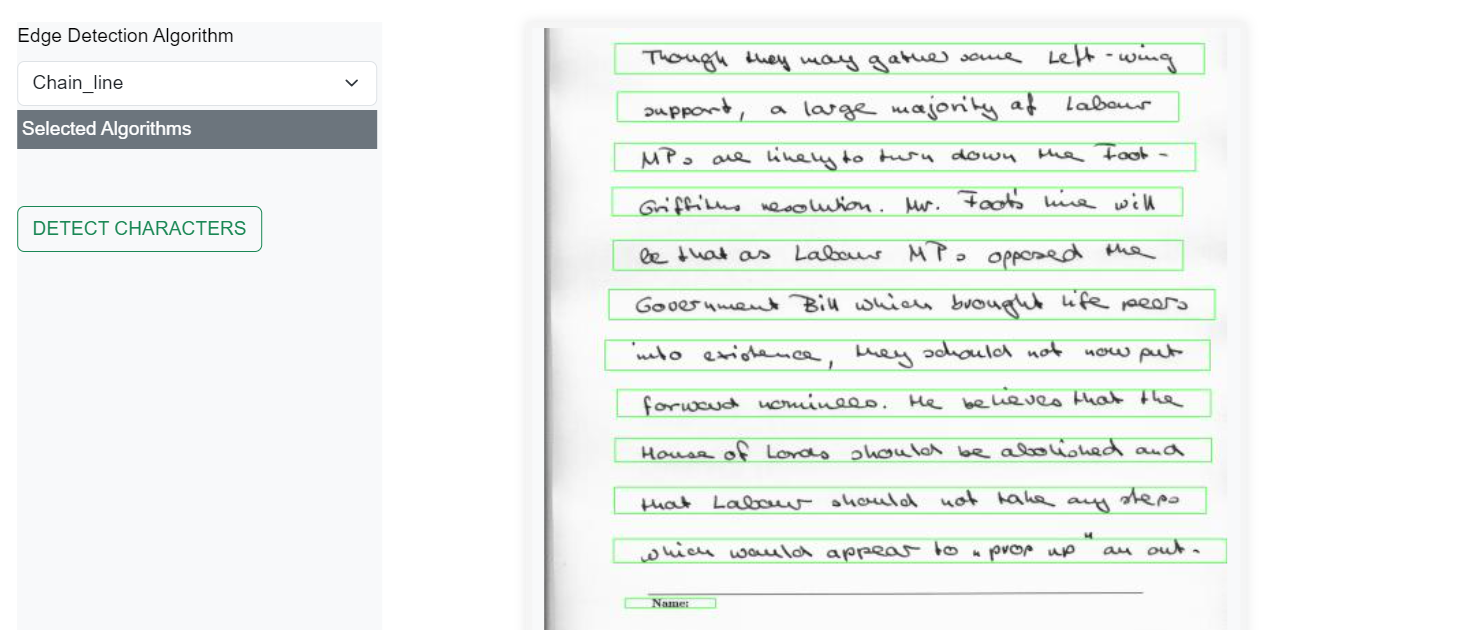 Edge Detection Algorithm
Chain_line
Selected Algorithms
DETECT CHARACTERS
Though they may gather some Left-wing
support, a large majority of Labour
MPs are likely to turn down the Foot-
Griffiths resolution. Mr. Foot's line will
be that as Labour MPs opposed the
Government Bill which brought life peers
into existence, they schould not now put
forward nominees. He believes that the
House of Lords should be abolished and
that Labour should not take any steps
which would appear to „prop up" an out-
Name: